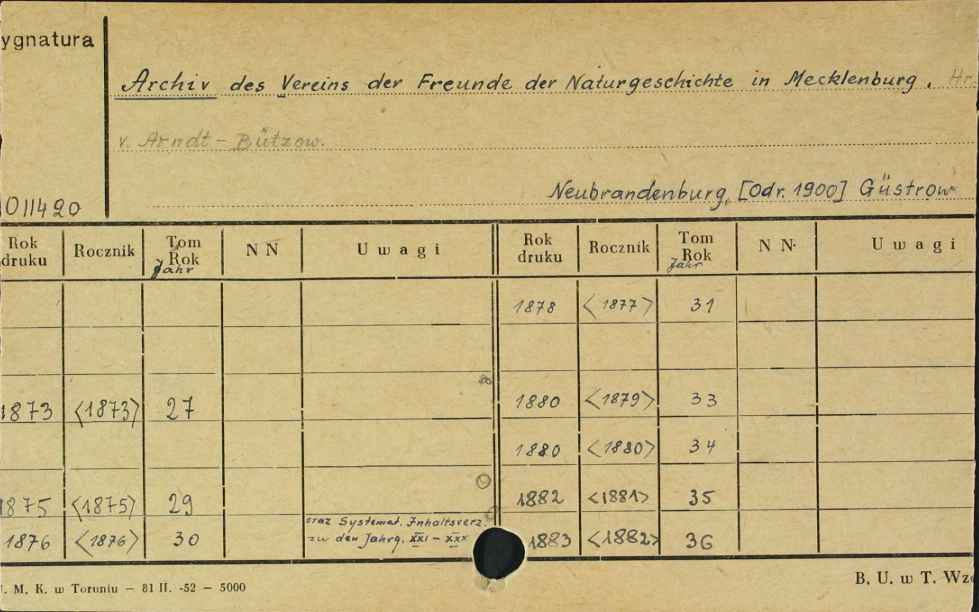 ygnatura
Archiv des Vereins der Freunde der Naturgeschichte in Mecklenburg.
v. Arndt - Bützow.
Neubrandenburg, [Odr. 1900] Güstrow
011420
Rok druku Rocznik Tom Rok Jahr N N U w a g i Rok druku Rocznik Tom Rok Jahr N N. U w a g i
1878 <1877> 31
1873 <1873> 27 1880 <1879> 33
1880 <1880> 34
1875 <1875> 29 1882 <1881> 35
oraz Systemat. Inhaltsverz.
1876 <1876> 30 zu den Jahrg. XXI - XXX 1883 <1882> 36
. M. K. w Toruniu — 81 II. -52 — 5000
B. U. w T. Wzo